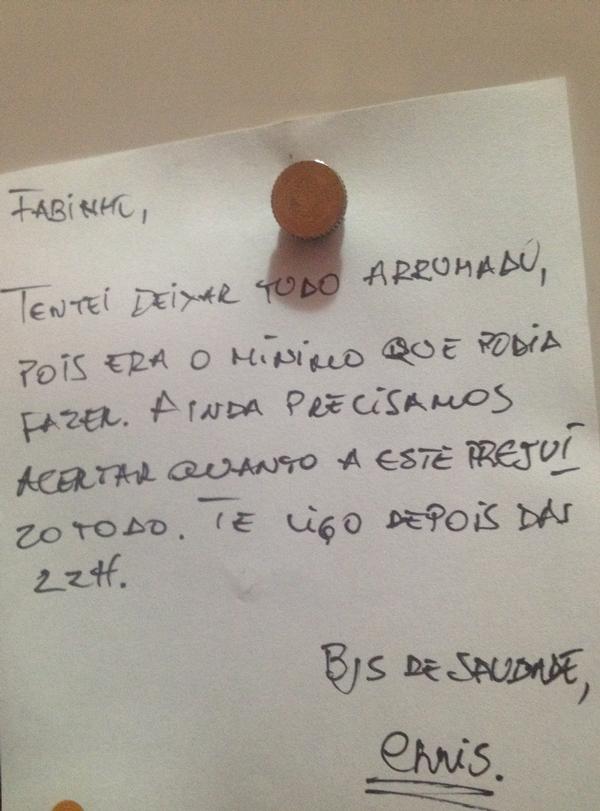 FABINHO,
TENTEI DEIXAR TUDO ARRUMADO,
POIS ERA O MÍNIMO QUE PODIA
FAZER. AINDA PRECISAMOS
ACERTAR QUANTO A ESTE PREJUÍ
ZO TODO. TE LIGO DEPOIS DAS
22H.
BJS DE SAUDADE,